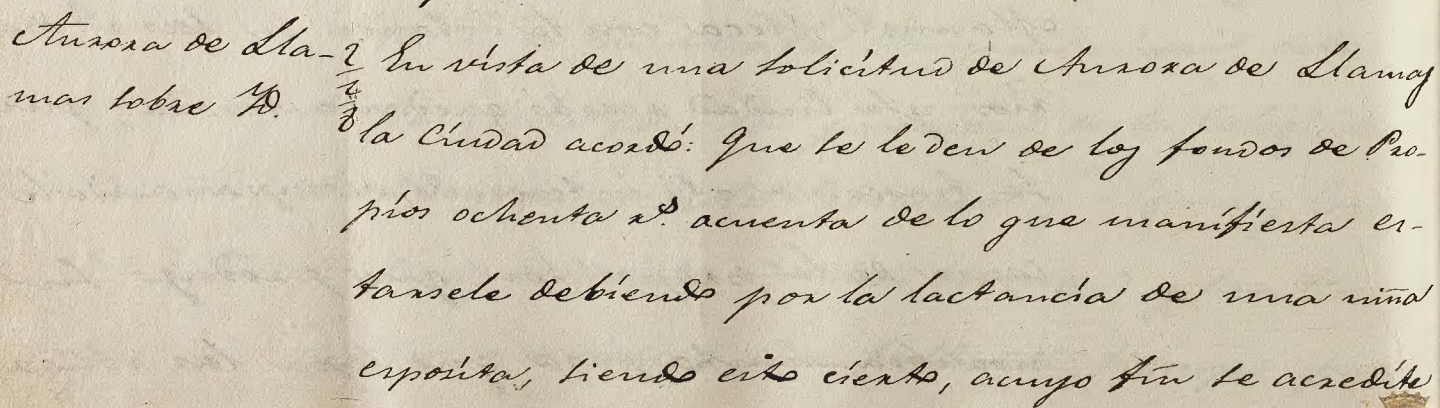 Aurora de Lla-
mas sobre Yd.
En vista de una solicitud de Aurora de Llamas
la Ciudad acordó: Que se le den de los fondos de Pro-
pios ochenta rs. acuenta de lo que manifiesta es-
tarsele debiendo por la lactancia de una niña
esposita, siendo esto cierto, acuyo fin se acredite